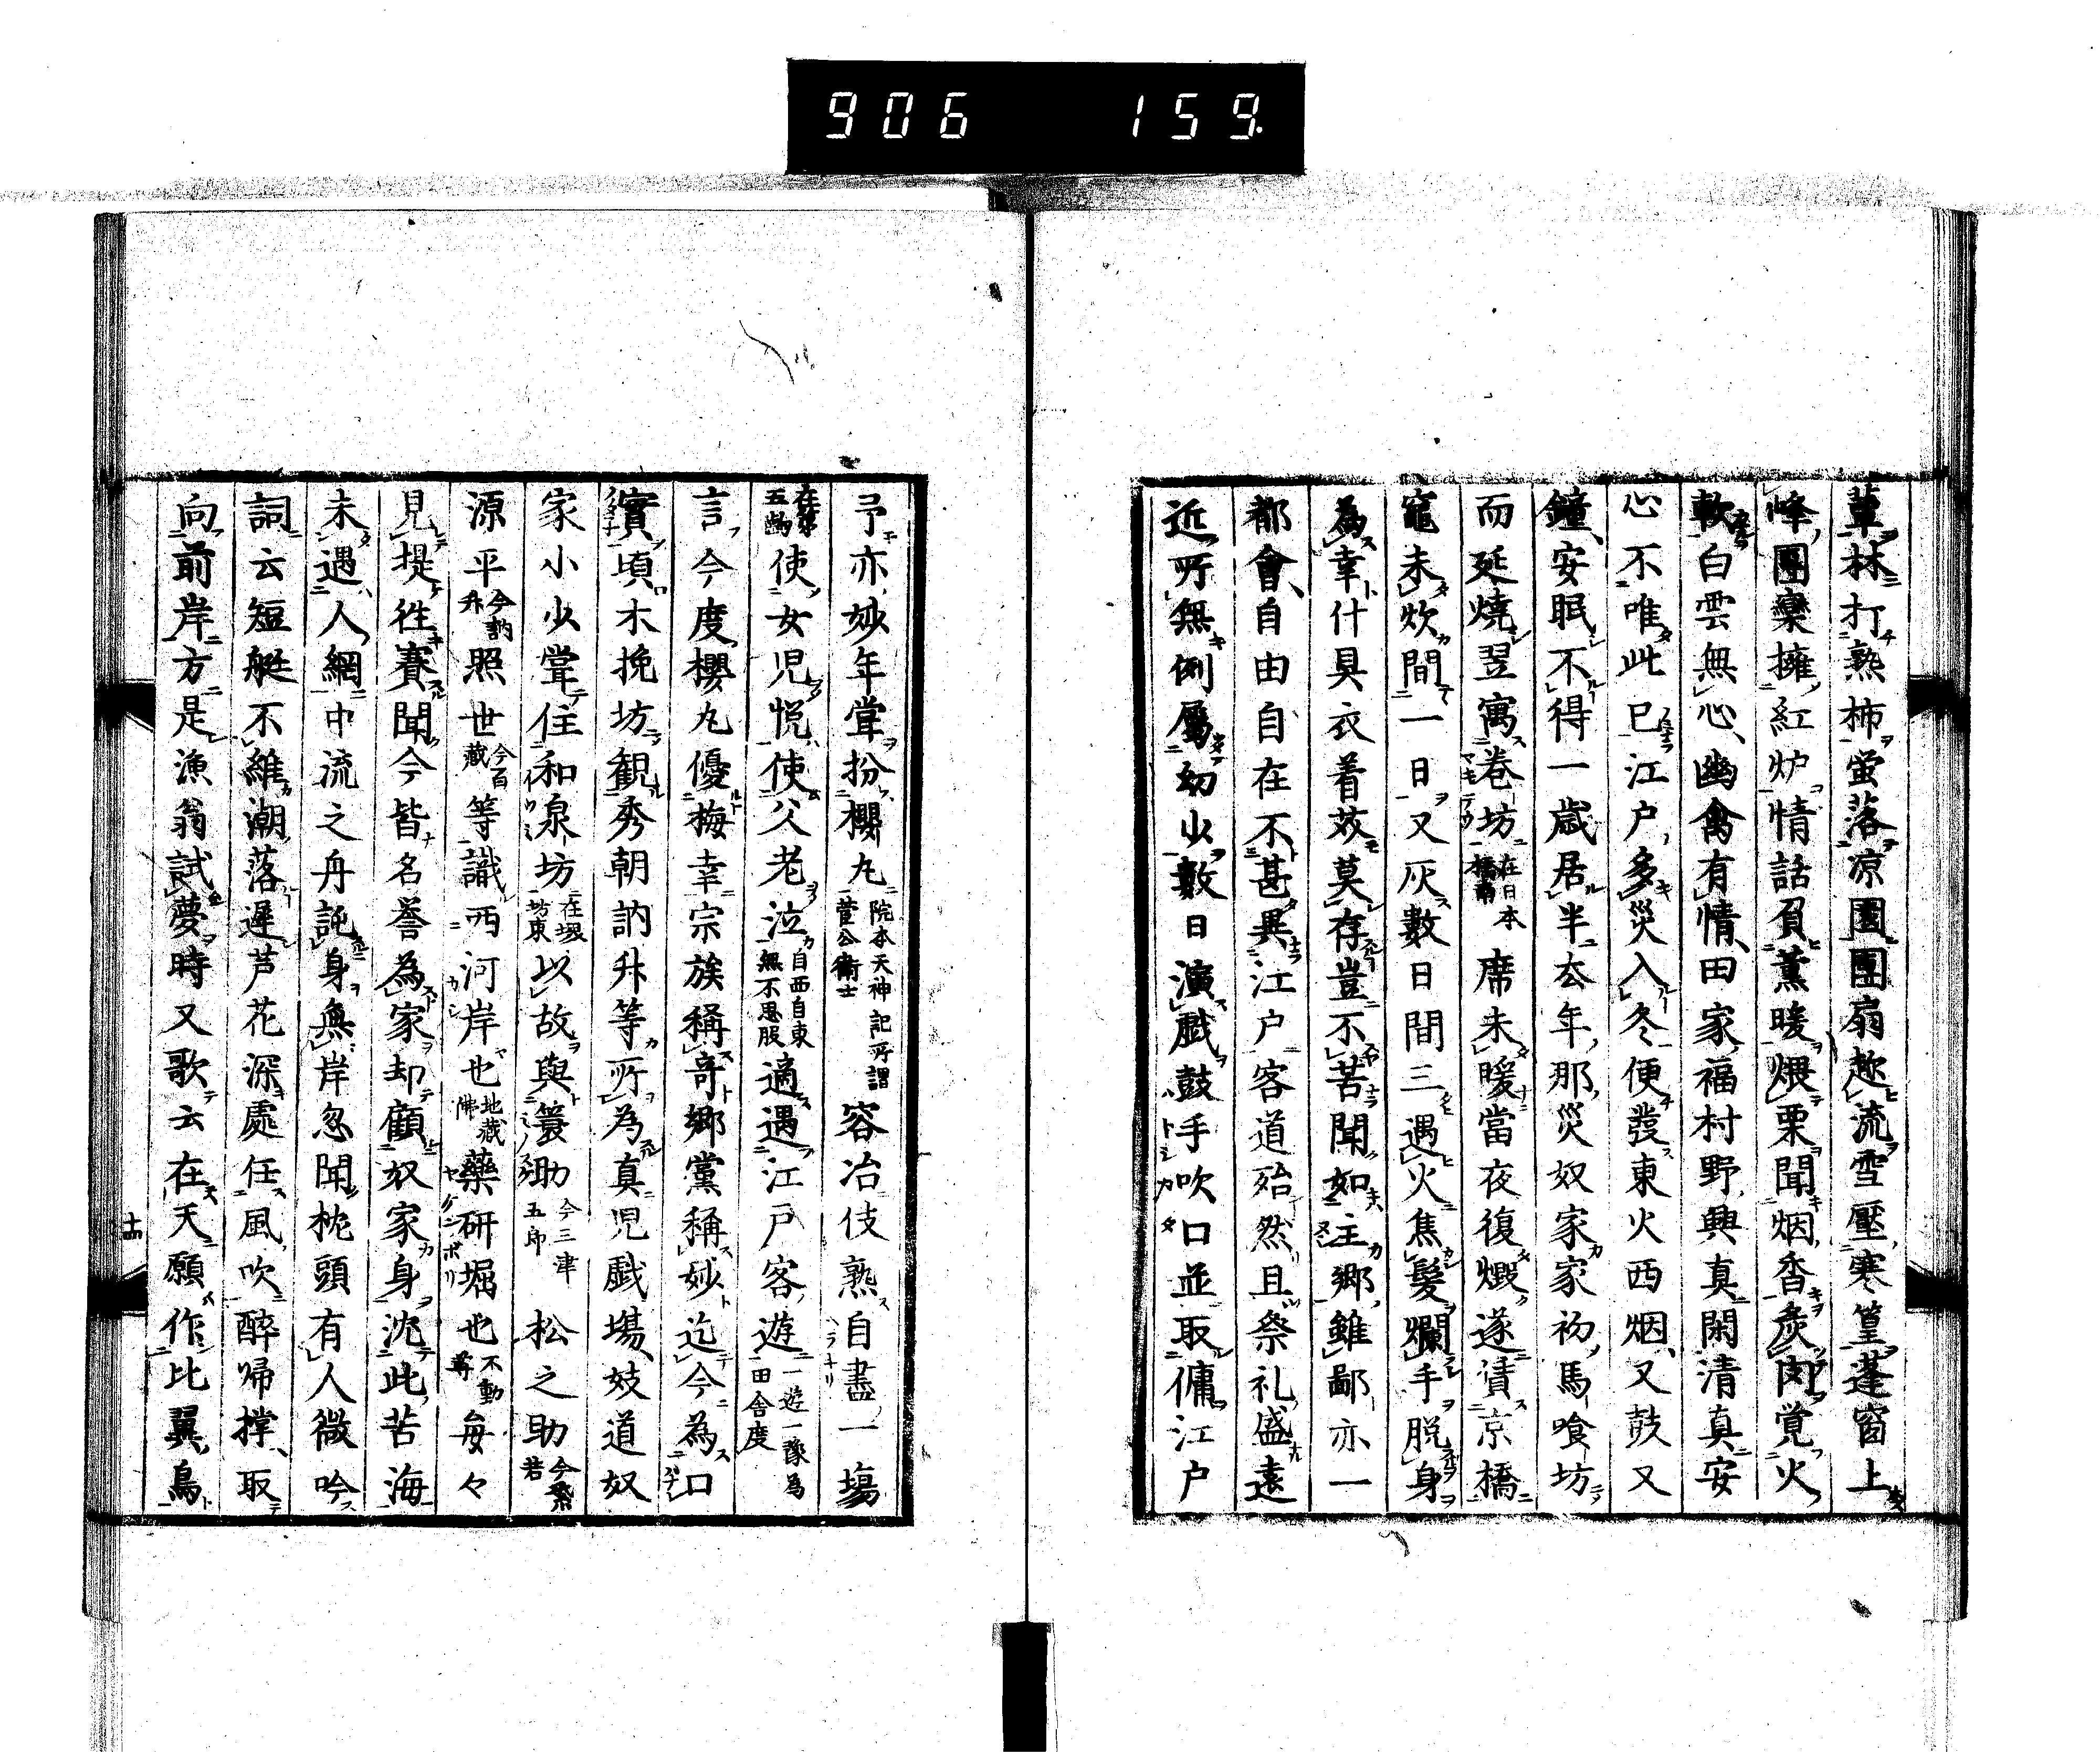 906 159.
蕈林打熟柿蛍落涼園團扇趁流雪壓寒篁蓬窗上
峰團欒擁紅炉情話負薫暖煨栗聞烟香炙肉覚火
軟白雲無心幽禽有情田家福村野興真閑清真安
心不唯此已江戸多災入冬便發東火西烟又鼓又
鐘安眠不得一歳居半去年那災奴家家初馬喰坊
而延燒翌寓巻坊在日本橋南席未暖當夜復燬遂漬京橋
竈未炊間一日又灰數日間三遇火焦髮爛手脱身
為幸什具衣着茲莫存豈不苦聞如主郷雖鄙亦一
都會自由自在不甚異江户客道殆然且祭礼盛遠
近所無例屬幼少數日演戯鼓手吹口並取傭江户
予亦妙年嘗扮櫻丸院本天神記所謂菅公衛士容冶伎熟自盡一場
使女児悦使父老泣自西自東無不思服適遇江戸客遊一遊一豫為田舎度
言今度櫻丸優梅幸宗族稱哥郷黨稱妙迄今為口
實頃木挽坊観秀朝訥升等所為真児戯場妓道奴
家小少嘗住和泉坊在堺坊東以故與簑助今三津五郎松之助今紫若
源平今訥升照世今百蔵等識西河岸也地蔵佛藥研堀也不動尊毎々
見提徃賽聞今皆名誉為家却顧奴家身沈此苦海
未遇人綱中流之舟託身無岸忽聞枕頭有人微吟
詞云短艇不維潮落遲芦花深處任風吹醉帰撑取
向前岸方是漁翁試夢時又歌云在天願作比翼鳥
十四